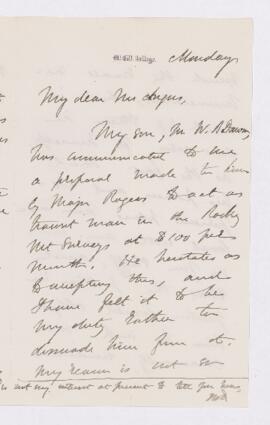 McGill College. Monday
My dear Mr Angus,
My son, Mr W. B Dawson,
has communicated to me
a proposal made to him
by Major Rogers to act as
transit man in the Rocky
Mt Surveys at $100 per
month. He hesitates as
to accepting this, and
I have felt it to be
my duty rather to
dissuade him from it.
My reason is not so
is not my interest at present to